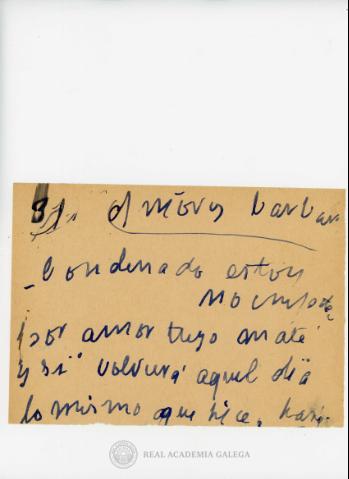 Amores
Condenado estoy
no importa
por amor tuyo maté
y si volviera aquel día
lo mismo que hice,
REAL ACADEMIA GALEGA